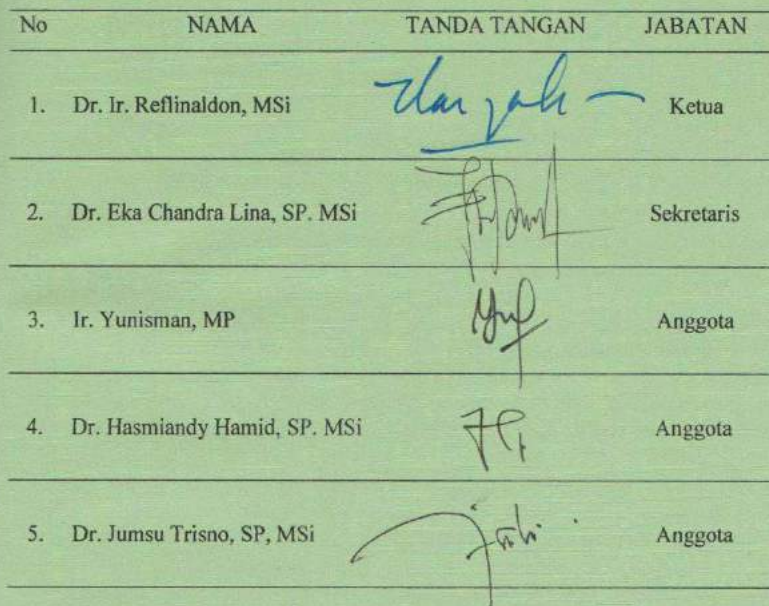 No NAMA TANDA TANGAN JABATAN
1. Dr. Ir. Reflinaldon, MSi Ketua
2. Dr. Eka Chandra Lina, SP. MSi Sekretaris
3. Ir. Yunisman, MP Anggota
4. Dr. Hasmiandy Hamid, SP. MSi Anggota
5. Dr. Jumsu Trisno, SP, MSi Anggota